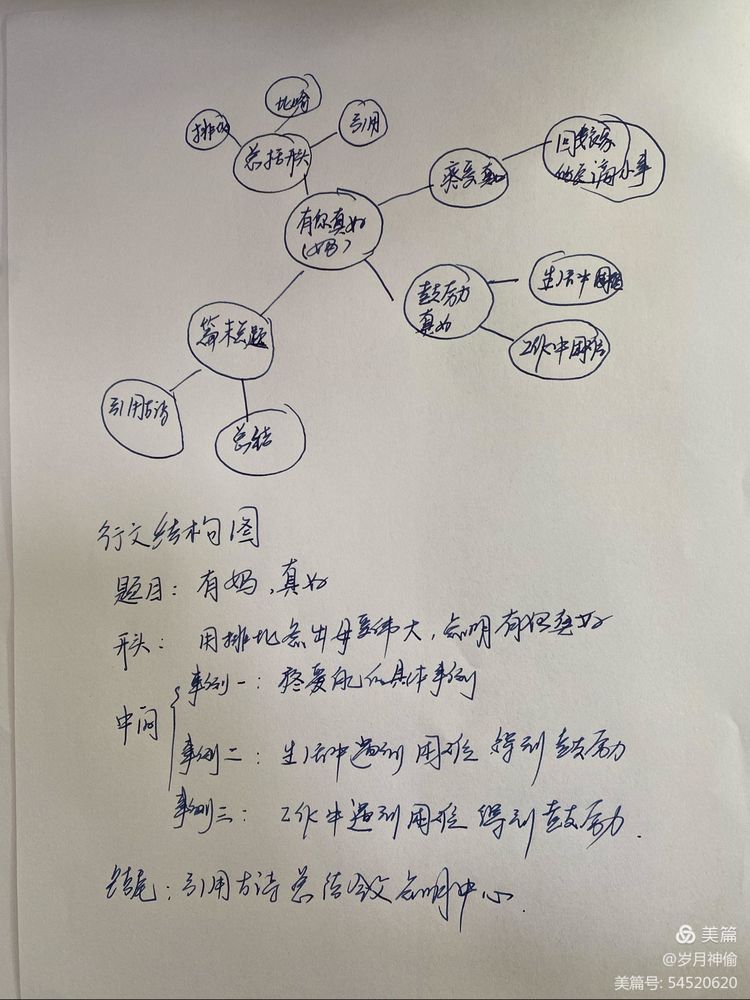 比喻
排比
引用
总括开头
疼爱真好
回娘家
的点滴小事
有你真好
(妈)
鼓励
真好
生活中困难
工作中困难
篇末点题
引用古诗
总结
行文结构图
题目：有妈，真好
开头：用排比点出母爱伟大，点明有你真好
中间
事例一：疼爱我的具体事例
事例二：生活中遇到困难 得到鼓励
事例三：工作中遇到困难 得到鼓励.
结尾：引用古诗总结全文点明中心.
美篇
@岁月神偷
美篇号: 54520620